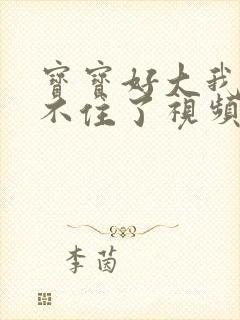 寶寶好大我
不住了視頻
李茵